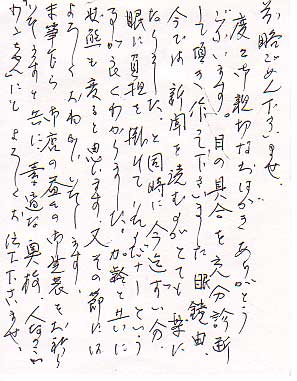 前略ごめん下さいませ。
度々御親切なおはがきありがとう
ございます。目の具合を充分診断
して頂き作って下さいました眼鏡由、
今では新聞を読むがとても楽に
なりました。と同時に今迄ずい分、
眼に負担を掛けていたんだナーという
事が良くわかりました。加齢と共に
状態も変ると思います 又その節には
よろしくおねがいいたします。
末筆ながら御店の益々の御発展をお祈り
いたしますと共に素適な奥様、
にもよろしくお伝え下さいませ。